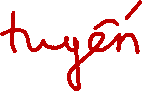 tuyến